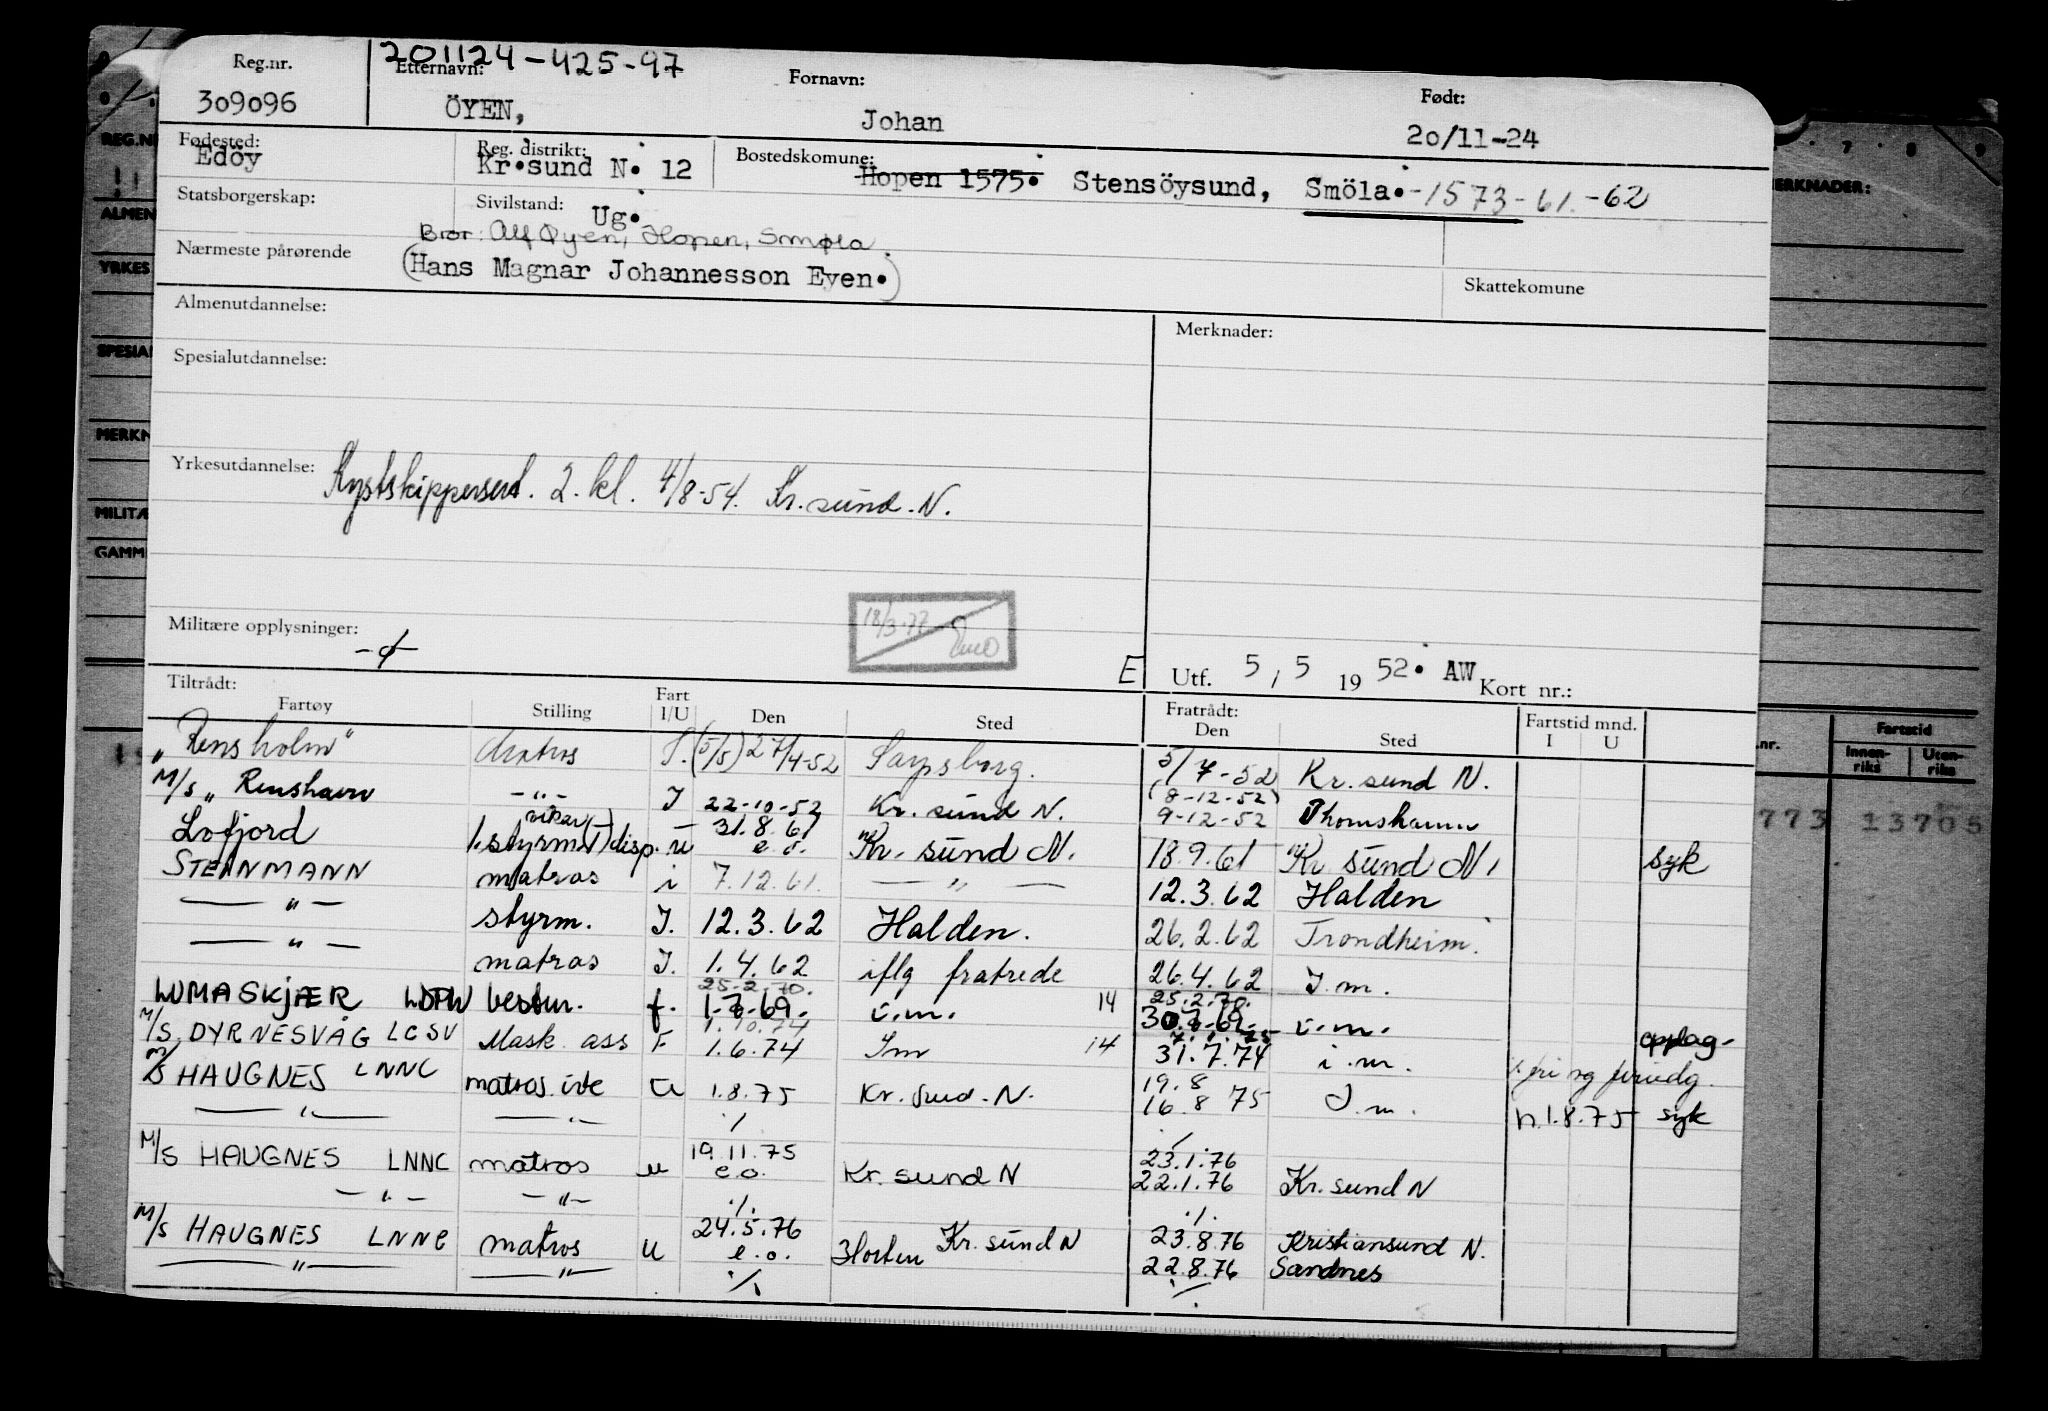 201124-425-97
Reg.nr. Etternavn: Fornavn: Født:
309096 ÖYEN, Johan 20/11-24
Fødested: Reg. distrikt: Bostedskomune:
Edöy Kr.sund N. 12 Hopen 1575. Stensöysund, Smöla. -1573-61.-62
Statsborgerskap: Sivilstand: Ug.
Bror: Alf Øyen, Hopen, Smøla.
Nærmeste pårørende (Hans Magnar Johannesson Even.)
Skattekomune
Almenutdannelse: Merknader:
Spesialutdannelse:
Yrkesutdannelse: Kystskippersert. 2. kl. 4/8-54. Kr.sund.N.
18/3-77
Militære opplysninger:
E Utf. 5, 5 19 52. AW Kort nr.:
Tiltrådt: Fratrådt:
Fartøy Stilling Fart I/U Den Sted Den Sted Fartstid mnd. I U
"Rensholm" Matros (5/5) 27/4-52 Sarpsborg. 5/7-52 Kr.sund N.
M/s "Renshavn -"- I 22-10-52 Kr. sund N. (8-12-52) 9-12-52 Thomshamn
Lofjord vikar 1.styrm disp. u 31.8.61 e.o. Kr. sund N. 18.9.61 Kr sund N. syk
STEINMANN matros i 7.12.61. — " — 12.3.62 Halden
— " — styrm. I. 12.3.62 Halden. 26.2.62 Trondheim.
— " — matros I. 1.4.62 iflg fratrede 26.4.62 I.m.
LUMASKJÆR LDPW bestm. f. 25-2-70. 1-7-69. i.m. 14 25.2.70. 30.7-69. i.m.
M/S DYRNESVÅG LCSV Mask. ass F 1.10.74 1.6.74 Im 14 31.7.74 i.m. opplag-
M/S HAUGNES LNNC matros U 1.8.75 Kr. Sund. N. 19.8 16.8 75 I.m. fri og feriedg.
— " — — " — n.1.8.75 syk
M/S HAUGNES LNNC matros u 19.11.75 e.o. Kr. sund N 23.1.76 22.1.76 Kr. sund N
— " — — " — ./. ./.
M/S HAUGNES LNNC matros u 24.5.76 e.o. Horten Kr. sund N 23.8.76 Kristiansund N.
— " — — " — ./. 22.8.76 Sandnes
REG.NR
ALMEN
YRKES
SPESIAL
MERKN
MILITÆ
GAMM
7 8 9
MERKNADER:
.nr. Fartstid
Innen-riks Uten-riks
773 13705